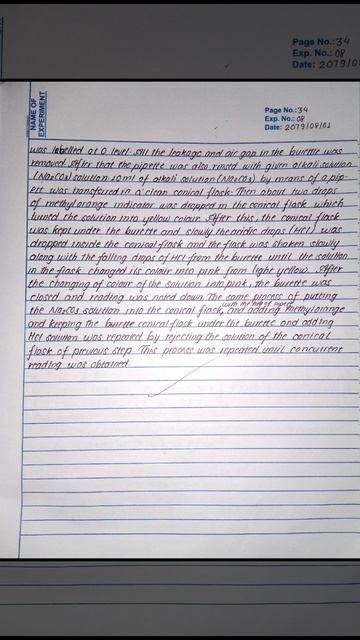 Page No.: 34
Exp. No.: 08
Date: 2079/0
NAME OF
EXPERIMENT
Page No.: 34
Exp. No.: 08
Date: 2079/08/01
was labelled at 0 level. All the leakage and air gap in the burette was
removed. After that the pipette was also rinsed with given alkali solution
(Na2CO3) solution. 10ml of alkali solution (Na2CO3) by means of a pip-
ett was transferred in a clean conical flask. Then about two drops
of methyl orange indicator was dropped in the conical flask which
turned the solution into yellow colour. After this, the conical flask
was kept under the burette and slowly the acidic drops (HCl) was
dropped inside the conical flask and the flask was shaken slowly
along with the falling drops of HCl from the burette until the solution
in the flask changed its colour into pink from light yellow. After
the changing of colour of the solution into pink, the burette was
closed and reading was noted down. The same process of putting
with the help of pipett
the Na2CO3 solution into the conical flask, and adding methyl orange
and keeping the burette conical flask under the burette and adding
HCl solution was repeated by rejecting the solution of the conical
flask of previous step. This process was repeated until concurrent
reading was obtained.